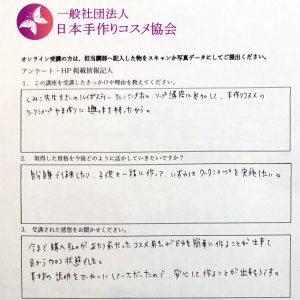 一般社団法人
日本手作りコスメ協会
オンライン受講の方は、担当講師へ記入した物をスキャンか写真データにしてご提出ください。
アンケート・HP掲載情報記入
1. この講座を受講したきっかけや理由を教えてください。
講座に参加して、手作りコスメの
ワークショップや手作りに興味を持ったから。
2. 取得した資格を今後どのように活かしていきたいですか?
自分自身でも使ったり、子供と一緒に作って、いずれはワークショップを実施したい。
3. 受講された感想をお聞かせください。
今まで購入するのが当たり前だったコスメ用品がとても簡単に作ることが出来て
目からウロコ状態でした。
手順の説明をていねいにしていただいたので、安心して作ることが出来そうです。